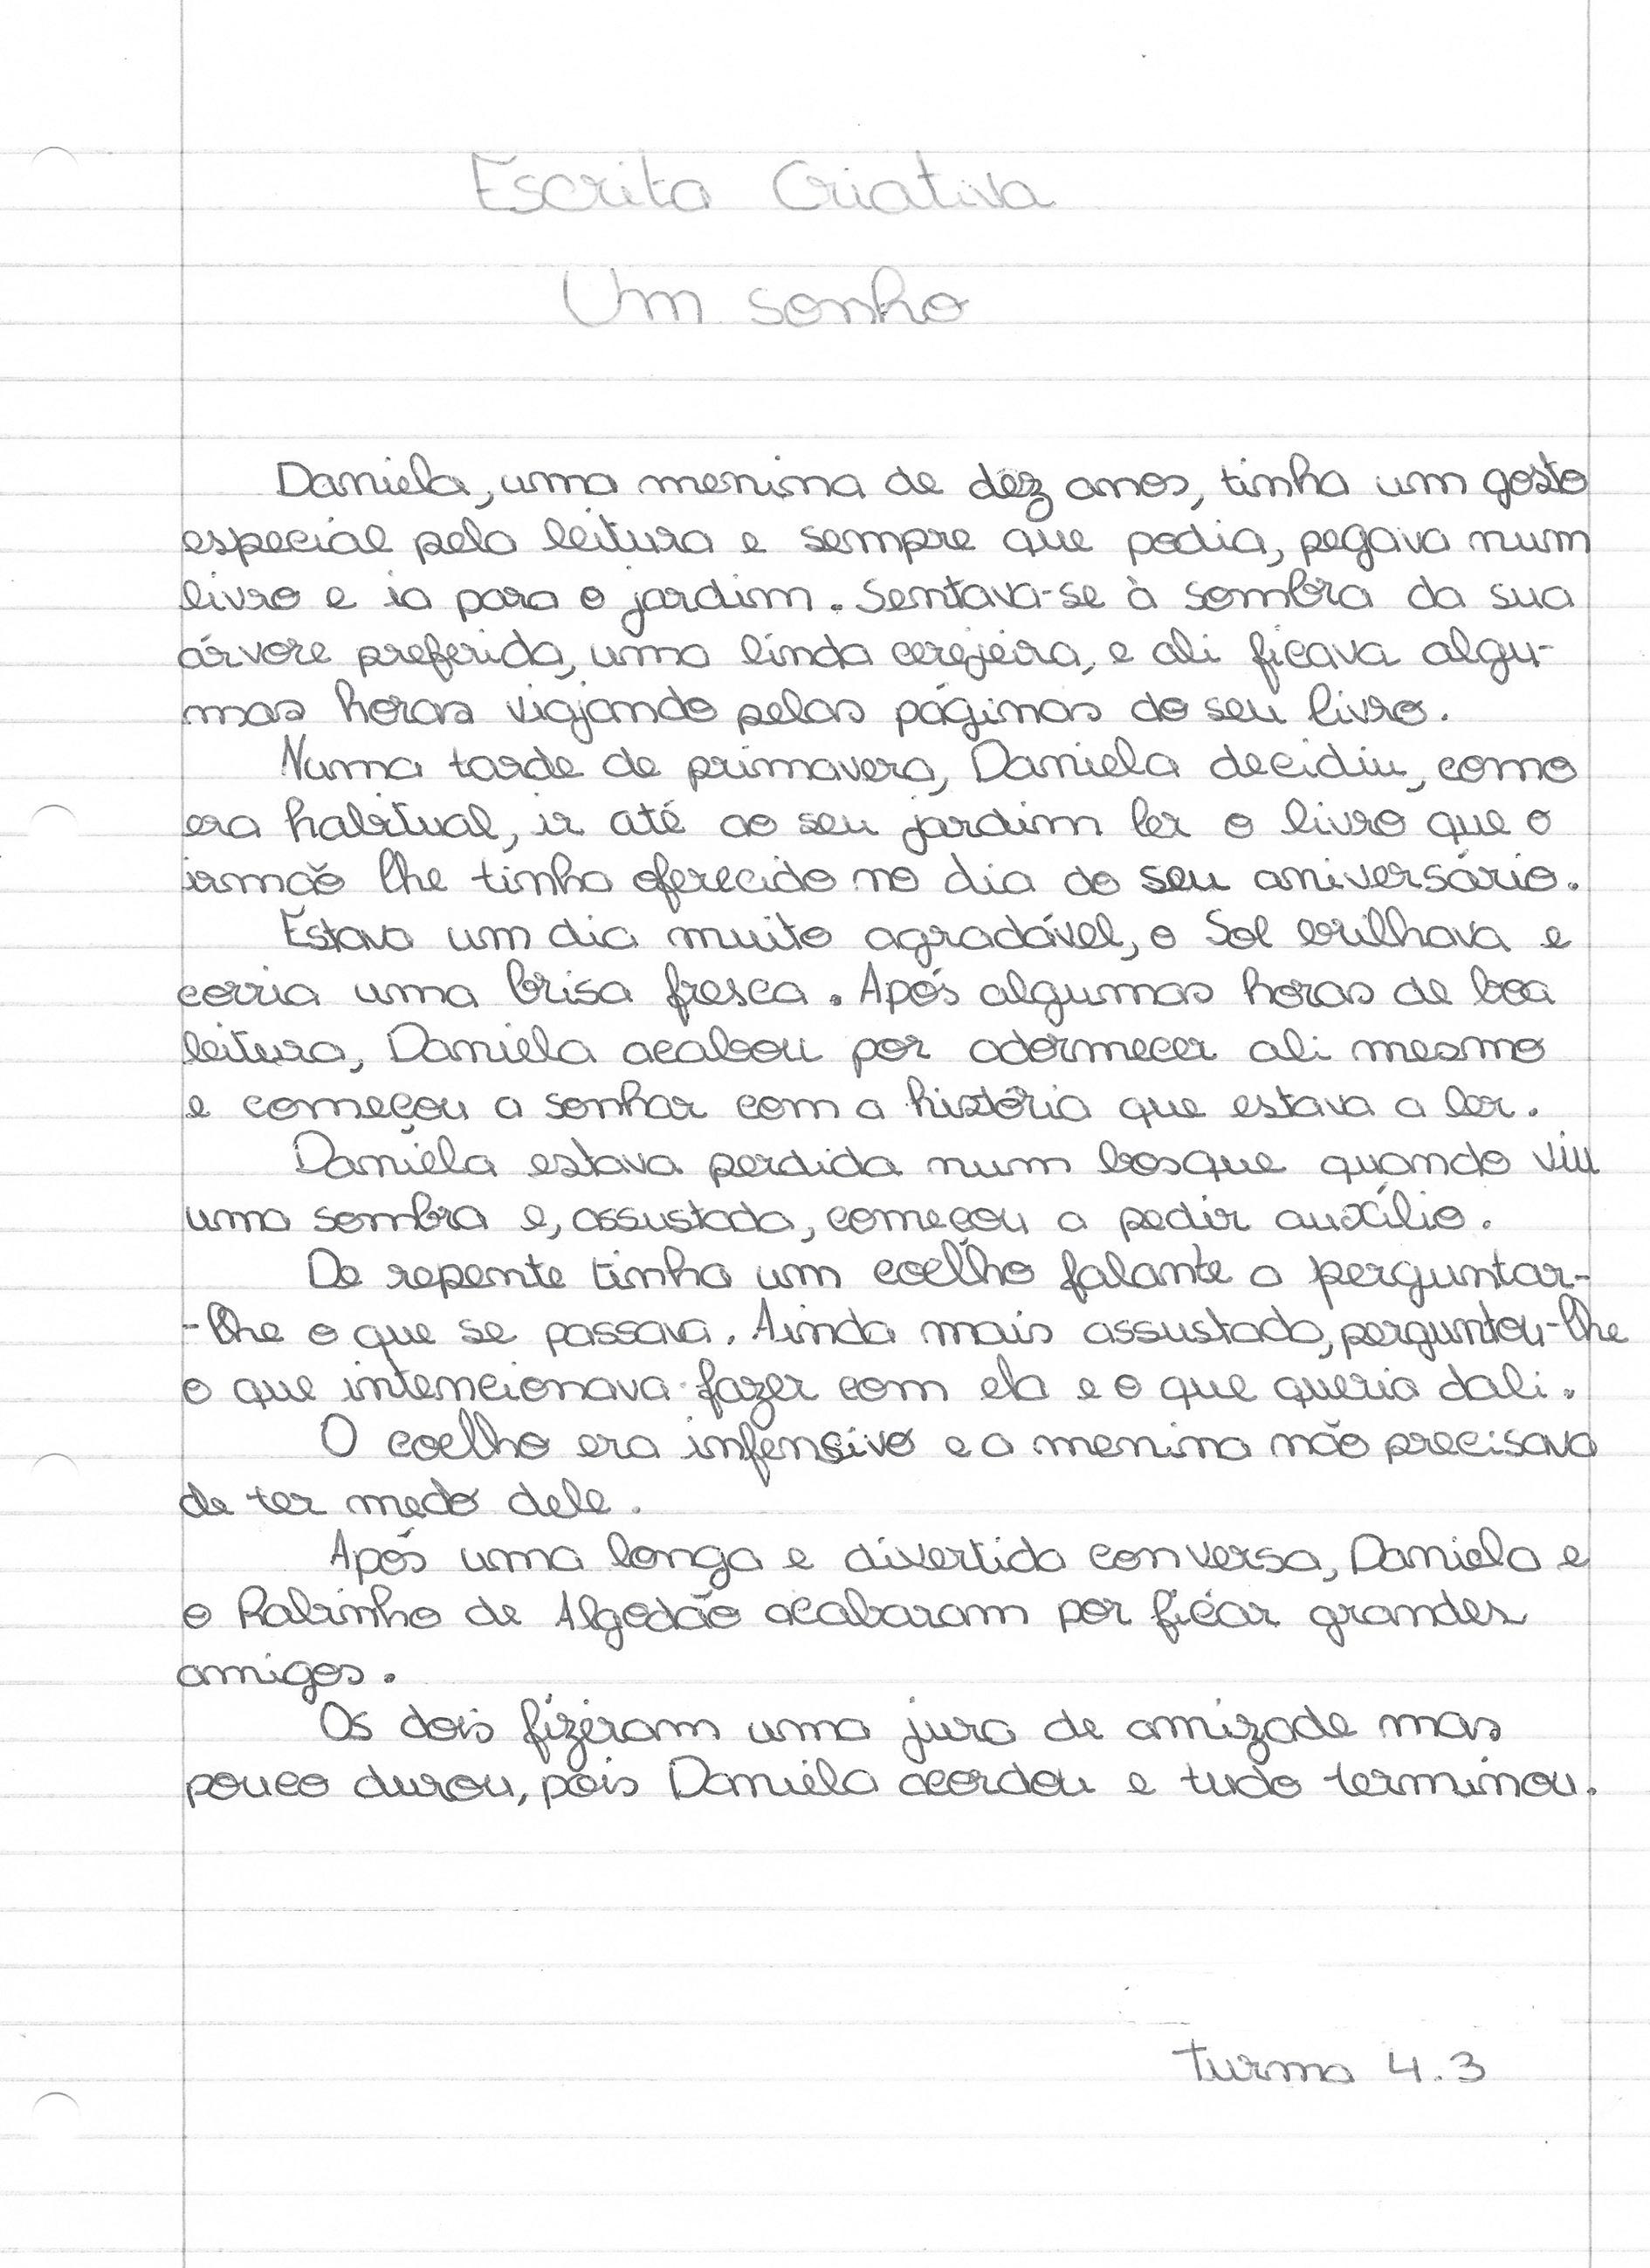 Escrita Criativa
Um sonho
Daniela, uma menina de dez anos, tinha um gosto
especial pela leitura e sempre que podia, pegava num
livro e ia para o jardim. Sentava-se à sombra da sua
árvore preferida, uma linda cerejeira, e ali ficava algu-
mas horas viajando pelas páginas do seu livro.
Numa tarde de primavera, Daniela decidiu, como
era habitual, ir até ao seu jardim ler o livro que o
irmão lhe tinha oferecido no dia do seu aniversário.
Estava um dia muito agradável, o Sol brilhava e
corria uma brisa fresca. Após algumas horas de boa
leitura, Daniela acabou por adormecer ali mesmo
e começou a sonhar com a história que estava a ler.
Daniela estava perdida num bosque quando viu
uma sombra e, assustada, começou a pedir auxílio.
De repente tinha um coelho falante a perguntar-
-lhe o que se passava. Ainda mais assustada, perguntou-lhe
o que intencionava fazer com ela e o que queria dali.
O coelho era infensivo e a menina não precisava
de ter medo dele.
Após uma longa e divertida conversa, Daniela e
o Rabinho de Algodão acabaram por ficar grandes
amigos.
Os dois fizeram uma jura de amizade mas
pouco durou, pois Daniela acordou e tudo terminou.
Turma 4.3